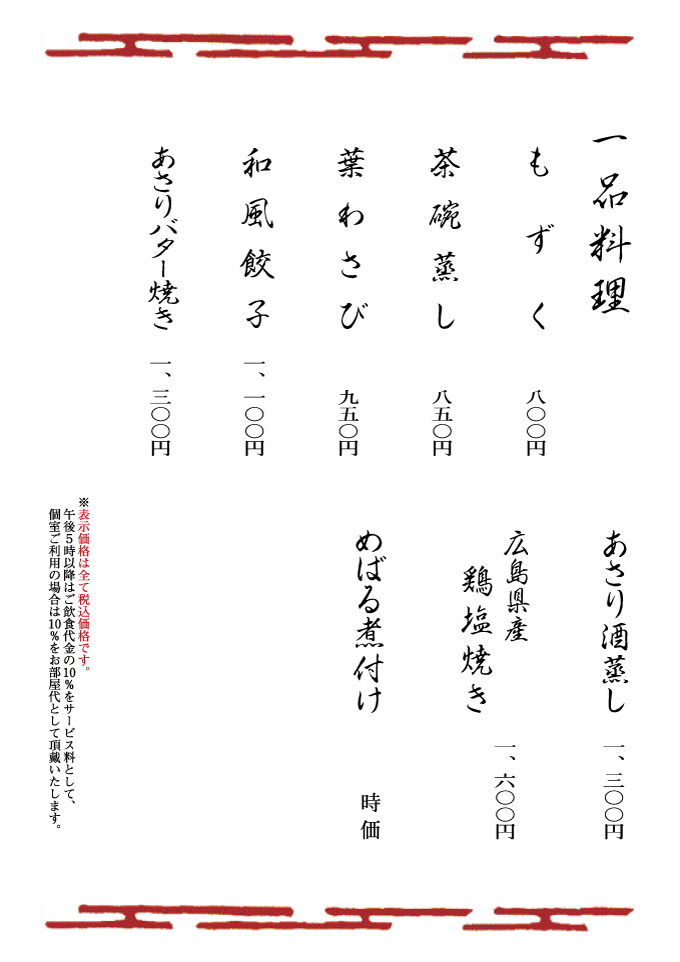 一品料理
もずく 八〇〇円
茶碗蒸し 八五〇円
葉わさび 九五〇円
和風餃子 一、一〇〇円
あさりバター焼き 一、三〇〇円
あさり酒蒸し 一、三〇〇円
広島県産
鶏塩焼き 一、六〇〇円
めばる煮付け 時価
※表示価格は全て税込価格です。
午後5時以降はご飲食代金の10%をサービス料として、
個室ご利用の場合は10%をお部屋代として頂戴いたします。